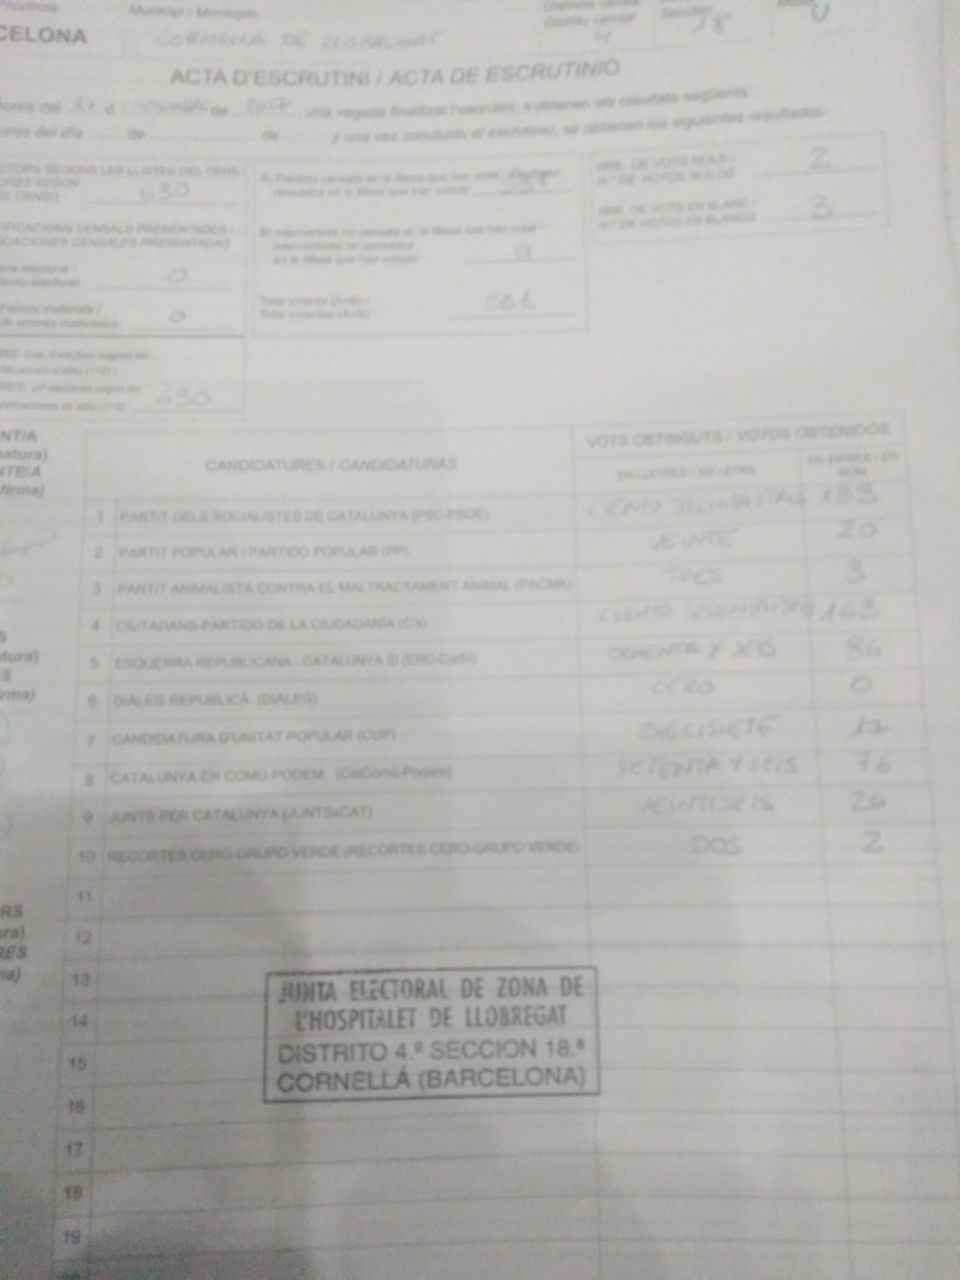 Municipi / Municipio
CELONA
CORNELLA DE LLOBREGAT
Districte censal
Distrito censal
4
Secció
Sección
18
U
ACTA D'ESCRUTINI / ACTA DE ESCRUTINIO
hores del 21 d de 2017 una vegada finalitzat l'escrutini, s'obtenen els resultats següents:
ores del día de de , y una vez concluido el escrutinio, se obtienen los siguientes resultados:
CTORS SEGONS LES LLISTES DEL CENS
ORES SEGÚN
EL CENSO 630
IFICACIONS CENSALS PRESENTADES /
CACIONES CENSALES PRESENTADAS
0
d'errors materials /
de errores materiales 0
630
A) Electors censats en la Mesa que han votat / Electores
censados en la Mesa que han votado
B) Interventors no censats en la Mesa que han votat /
Interventores no censados
en la Mesa que han votado 0
Total votants (A+B) /
Total votantes (A+B) 531
NRE. DE VOTS NULS /
N.º DE VOTOS NULOS 2
NRE. DE VOTS EN BLANC /
N.º DE VOTOS EN BLANCO 3
NT/A
natura)
NTE/A
firma)
CANDIDATURES / CANDIDATURAS
VOTS OBTINGUTS / VOTOS OBTENIDOS
EN LLETRES / EN LETRA
EN XIFRES / EN NÚM.
1 PARTIT DELS SOCIALISTES DE CATALUNYA (PSC-PSOE) CIENTO TREINTA Y TRES 133
2 PARTIT POPULAR / PARTIDO POPULAR (PP) VEINTE 20
3 PARTIT ANIMALISTA CONTRA EL MALTRACTAMENT ANIMAL (PACMA) TRES 3
4 CIUTADANS-PARTIDO DE LA CIUDADANÍA (C's) CIENTO SESENTA Y TRES 163
5 ESQUERRA REPUBLICANA - CATALUNYA SÍ (ERC-CatSí) OCHENTA Y SEIS 86
6 DIÀLEG REPUBLICÀ (DIÀLEG) CERO 0
7 CANDIDATURA D'UNITAT POPULAR (CUP) DIECISIETE 17
8 CATALUNYA EN COMÚ-PODEM (CatComú-Podem) SETENTA Y SEIS 76
9 JUNTS PER CATALUNYA (JUNTSxCAT) VEINTISEIS 26
10 RECORTES CERO-GRUPO VERDE (RECORTES CERO-GRUPO VERDE) DOS 2
11
12
13
14
15
16
17
18
19
JUNTA ELECTORAL DE ZONA DE
L'HOSPITALET DE LLOBREGAT
DISTRITO 4.º SECCION 18.ª
CORNELLÁ (BARCELONA)